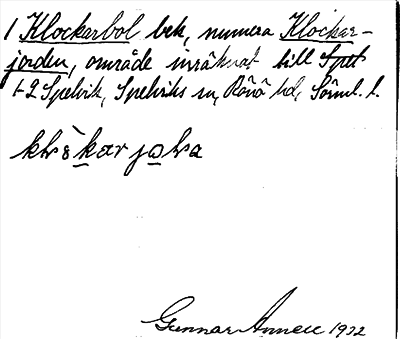 1 Klockerbol bek, numera Klockar-
jorden, område inräknat till Spet
1-2 Spelvik, Spelviks sn, Rönö hd, Söml. l.
Gunnar Annell 1932